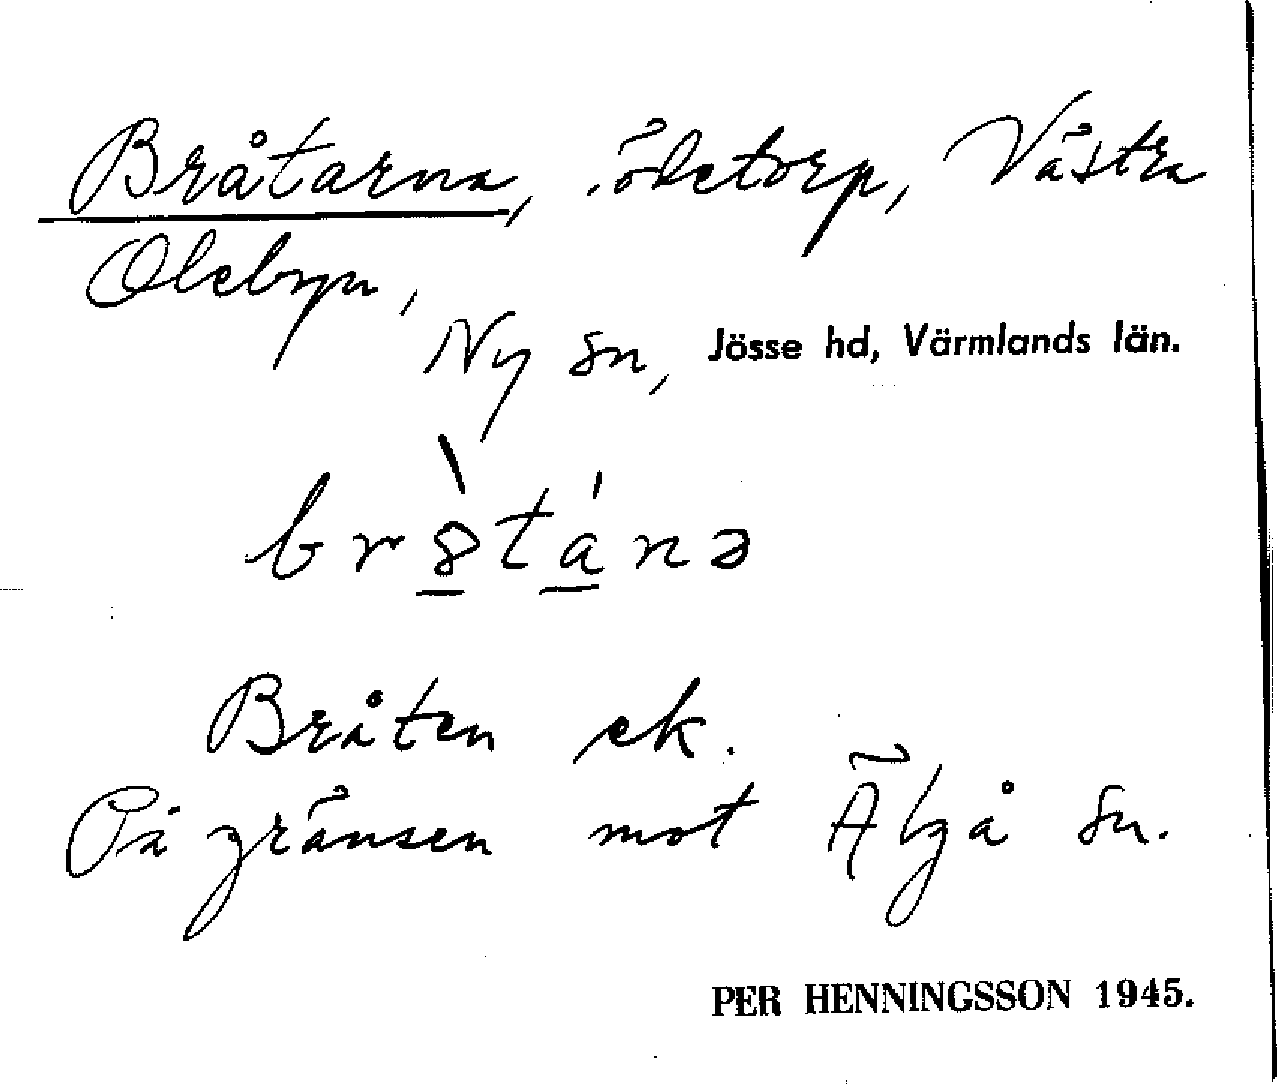 Bråtarna, ödetorp, Västra
Olebyn,
Ny sn, Jösse hd, Värmlands län.
br8̠̀tá̠nə
Bråten ek.
På gränsen mot Älgå sn.
PER HENNINGSSON 1945.